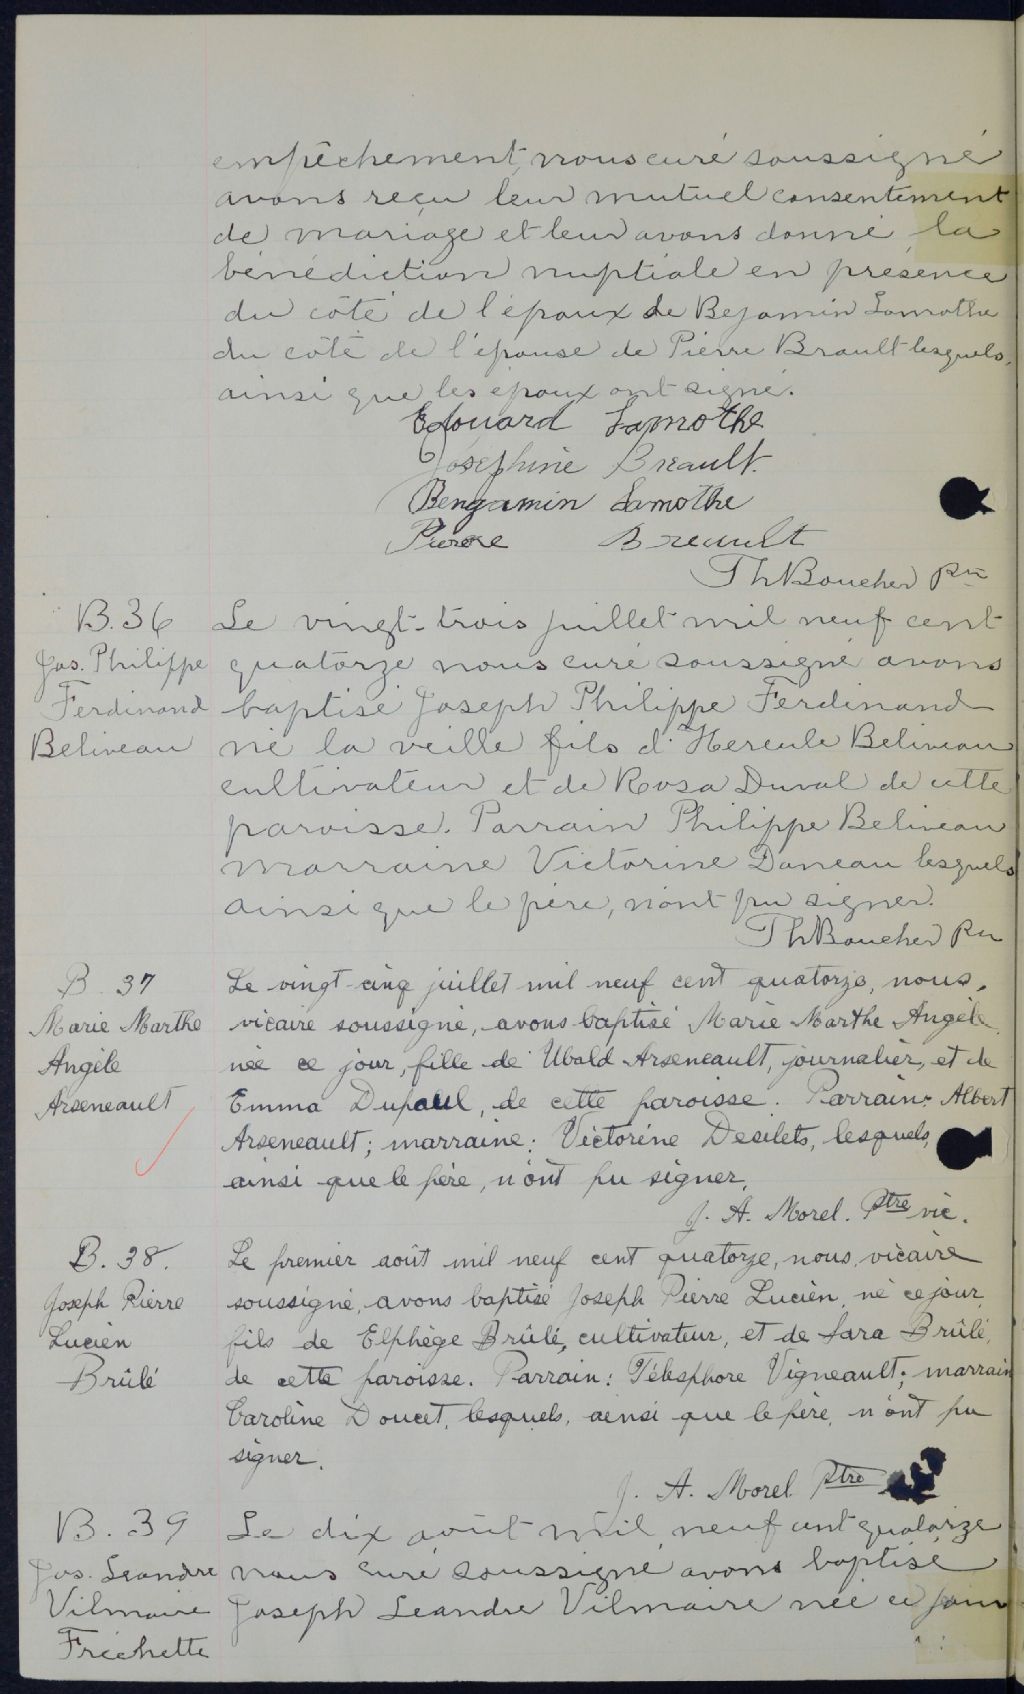 empêchement, nous curé soussigné
avons reçu leur mutuel consentement
de mariage et leur avons donné la
bénédiction nuptiale en présence
du côté de l'époux de Bejamin Lamothe
du côté de l'épouse de Pierre Brault lesquels,
ainsi que les époux ont signé.
Edouard Lamothe
Josephine Breault.
Bengamin Lamothe
Pierre Breault
Th Boucher Ptre
B. 36
Jos. Philippe
Ferdinand
Beliveau
Le vingt-trois juillet mil neuf cent
quatorze nous curé soussigné avons
baptisé Joseph Philippe Ferdinand
né la veille fils d'Hercule Beliveau
cultivateur et de Rosa Duval de cette
paroisse. Parrain Philippe Beliveau
marraine Victorine Daneau lesquels
ainsi que le père, n'ont pu signer.
Th Boucher Ptre
B. 37
Marie Marthe
Angèle
Arseneault
Le vingt-cinq juillet mil neuf cent quatorze, nous,
vicaire soussigné, avons baptisé Marie Marthe Angèle,
née ce jour, fille de Ubald Arseneault, journalier, et de
Emma Dupaul, de cette paroisse. Parrain: Albert
Arseneault; marraine: Victorine Desilets, lesquels,
ainsi que le père, n'ont pu signer.
J. A. Morel. Ptre vic.
B. 38.
Joseph Pierre
Lucien
Brûlé
Le premier août mil neuf cent quatorze, nous, vicaire
soussigné, avons baptisé Joseph Pierre Lucien, né ce jour,
fils de Elphège Brûlé, cultivateur, et de Sara Brûlé,
de cette paroisse. Parrain: Télesphore Vigneault; marrain
Caroline Doucet, lesquels, ainsi que le père, n'ont pu
signer.
J. A. Morel Ptre
B. 39
Jos. Leandre
Vilmaire
Fréchette
Le dix août mil neuf cent quatorze
nous curé soussigné avons baptisé
Joseph Leandre Vilmaire née ce jour